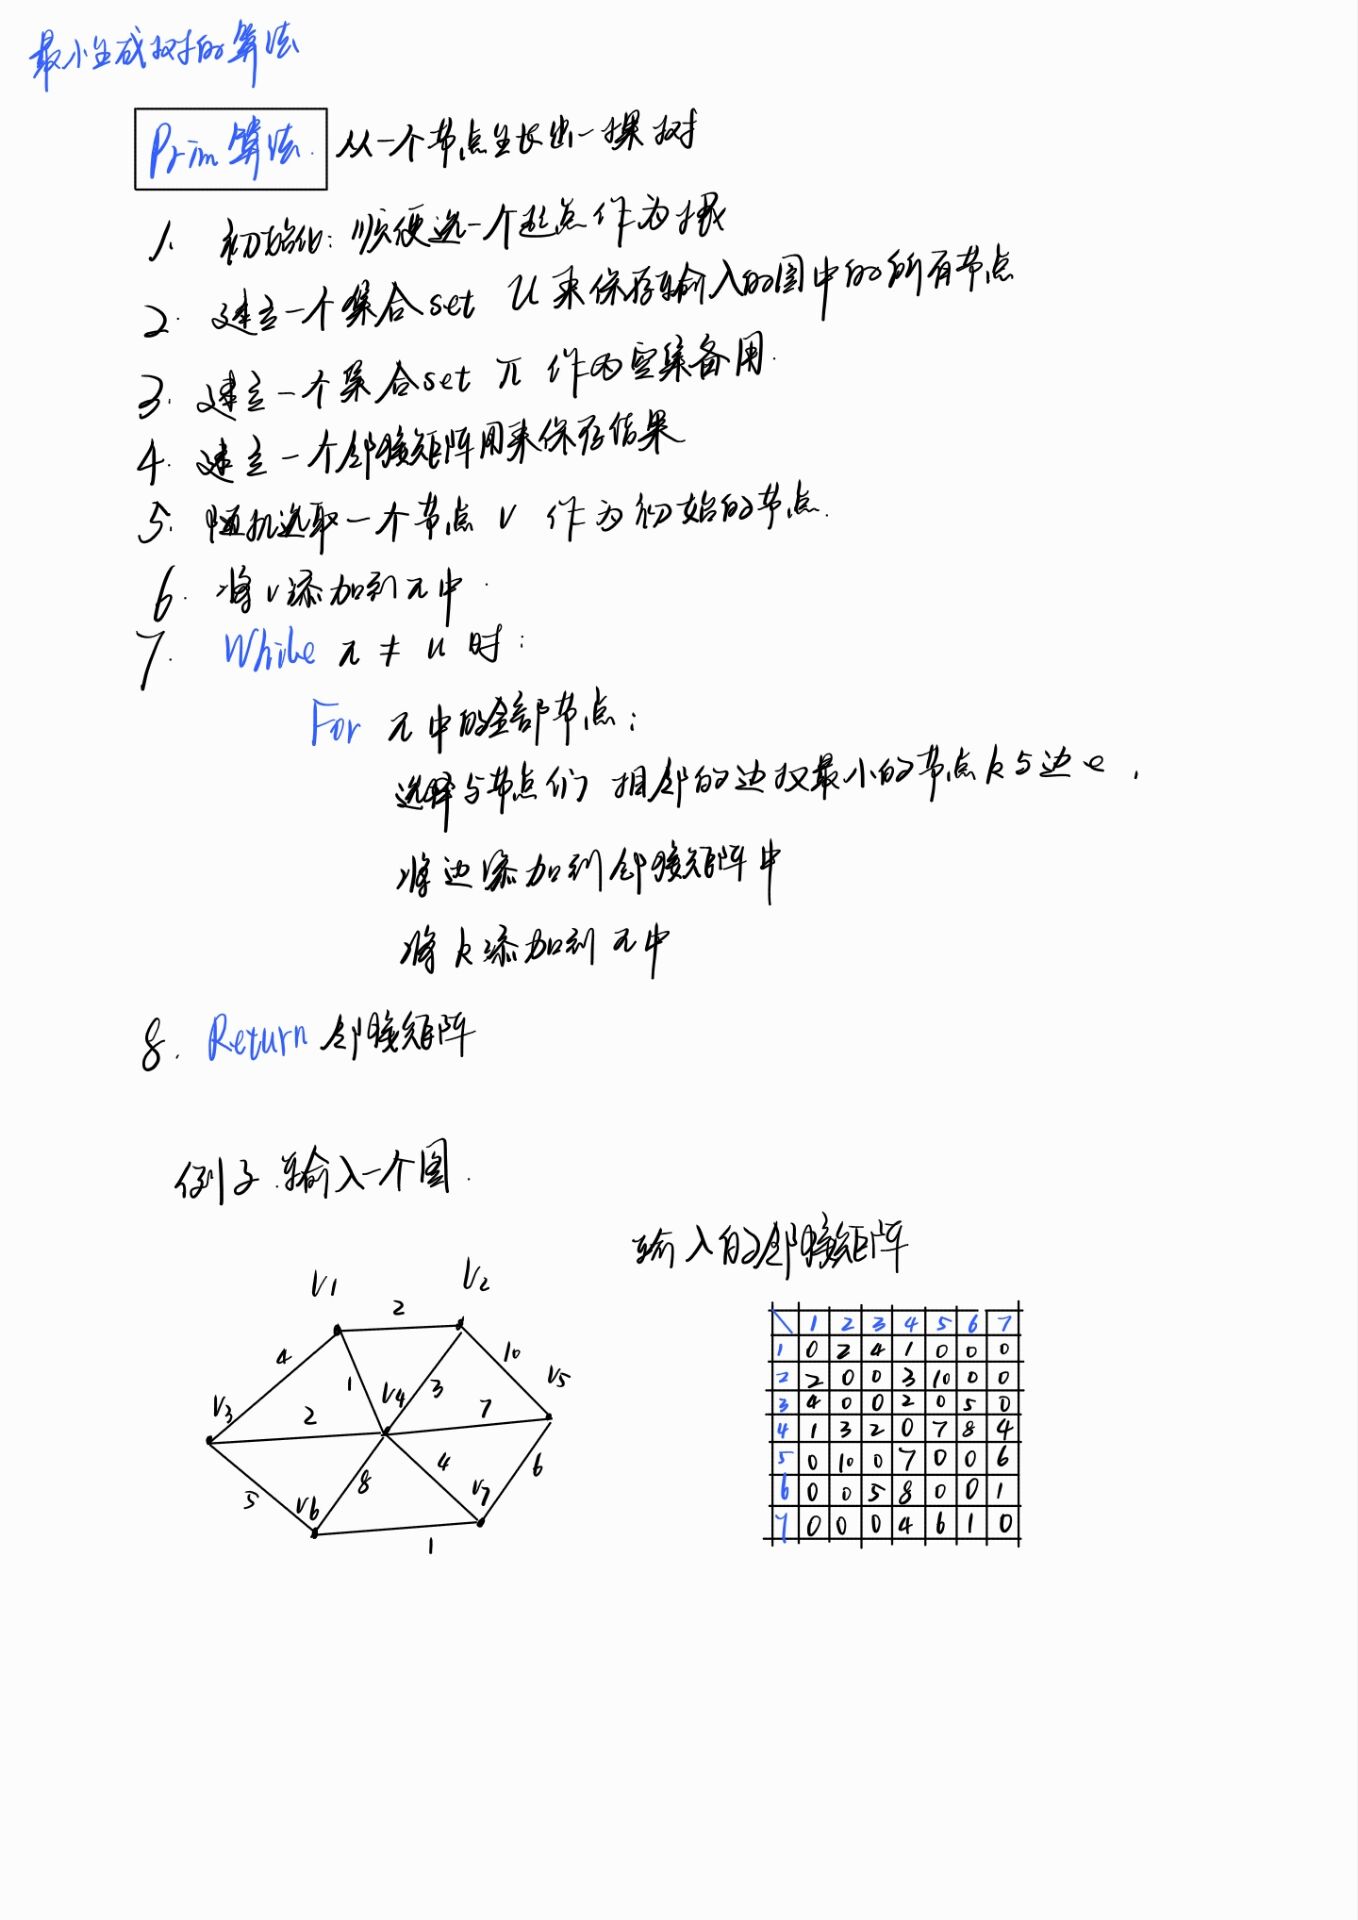 最小生成树的算法
Prim 算法. 从一个节点生长出一棵树
1. 初始化: 顺便选一个起点作为根
2. 建立一个集合 set U 来保存输入的图中的所有节点
3. 建立一个集合 set π 作为空集备用.
4. 建立一个邻接矩阵用来保存结果
5. 随机选取一个节点 v 作为初始的节点.
6. 将 v 添加到 π 中.
7. While π ≠ u 时:
For π 中的全部节点:
选择与节点们相邻的边权最小的节点 k 与边 e,
将边添加到邻接矩阵中
将 k 添加到 π 中
8. Return 邻接矩阵
例子. 输入一个图.
输入的邻接矩阵
V1 V2
2
4 1 V4 3 10 V5
V3 2 7
5 V6 8 4 V7 6
1
1 2 3 4 5 6 7
1 0 2 4 1 0 0 0
2 2 0 0 3 10 0 0
3 4 0 0 2 0 5 0
4 1 3 2 0 7 8 4
5 0 10 0 7 0 0 6
6 0 0 5 8 0 0 1
7 0 0 0 4 6 1 0